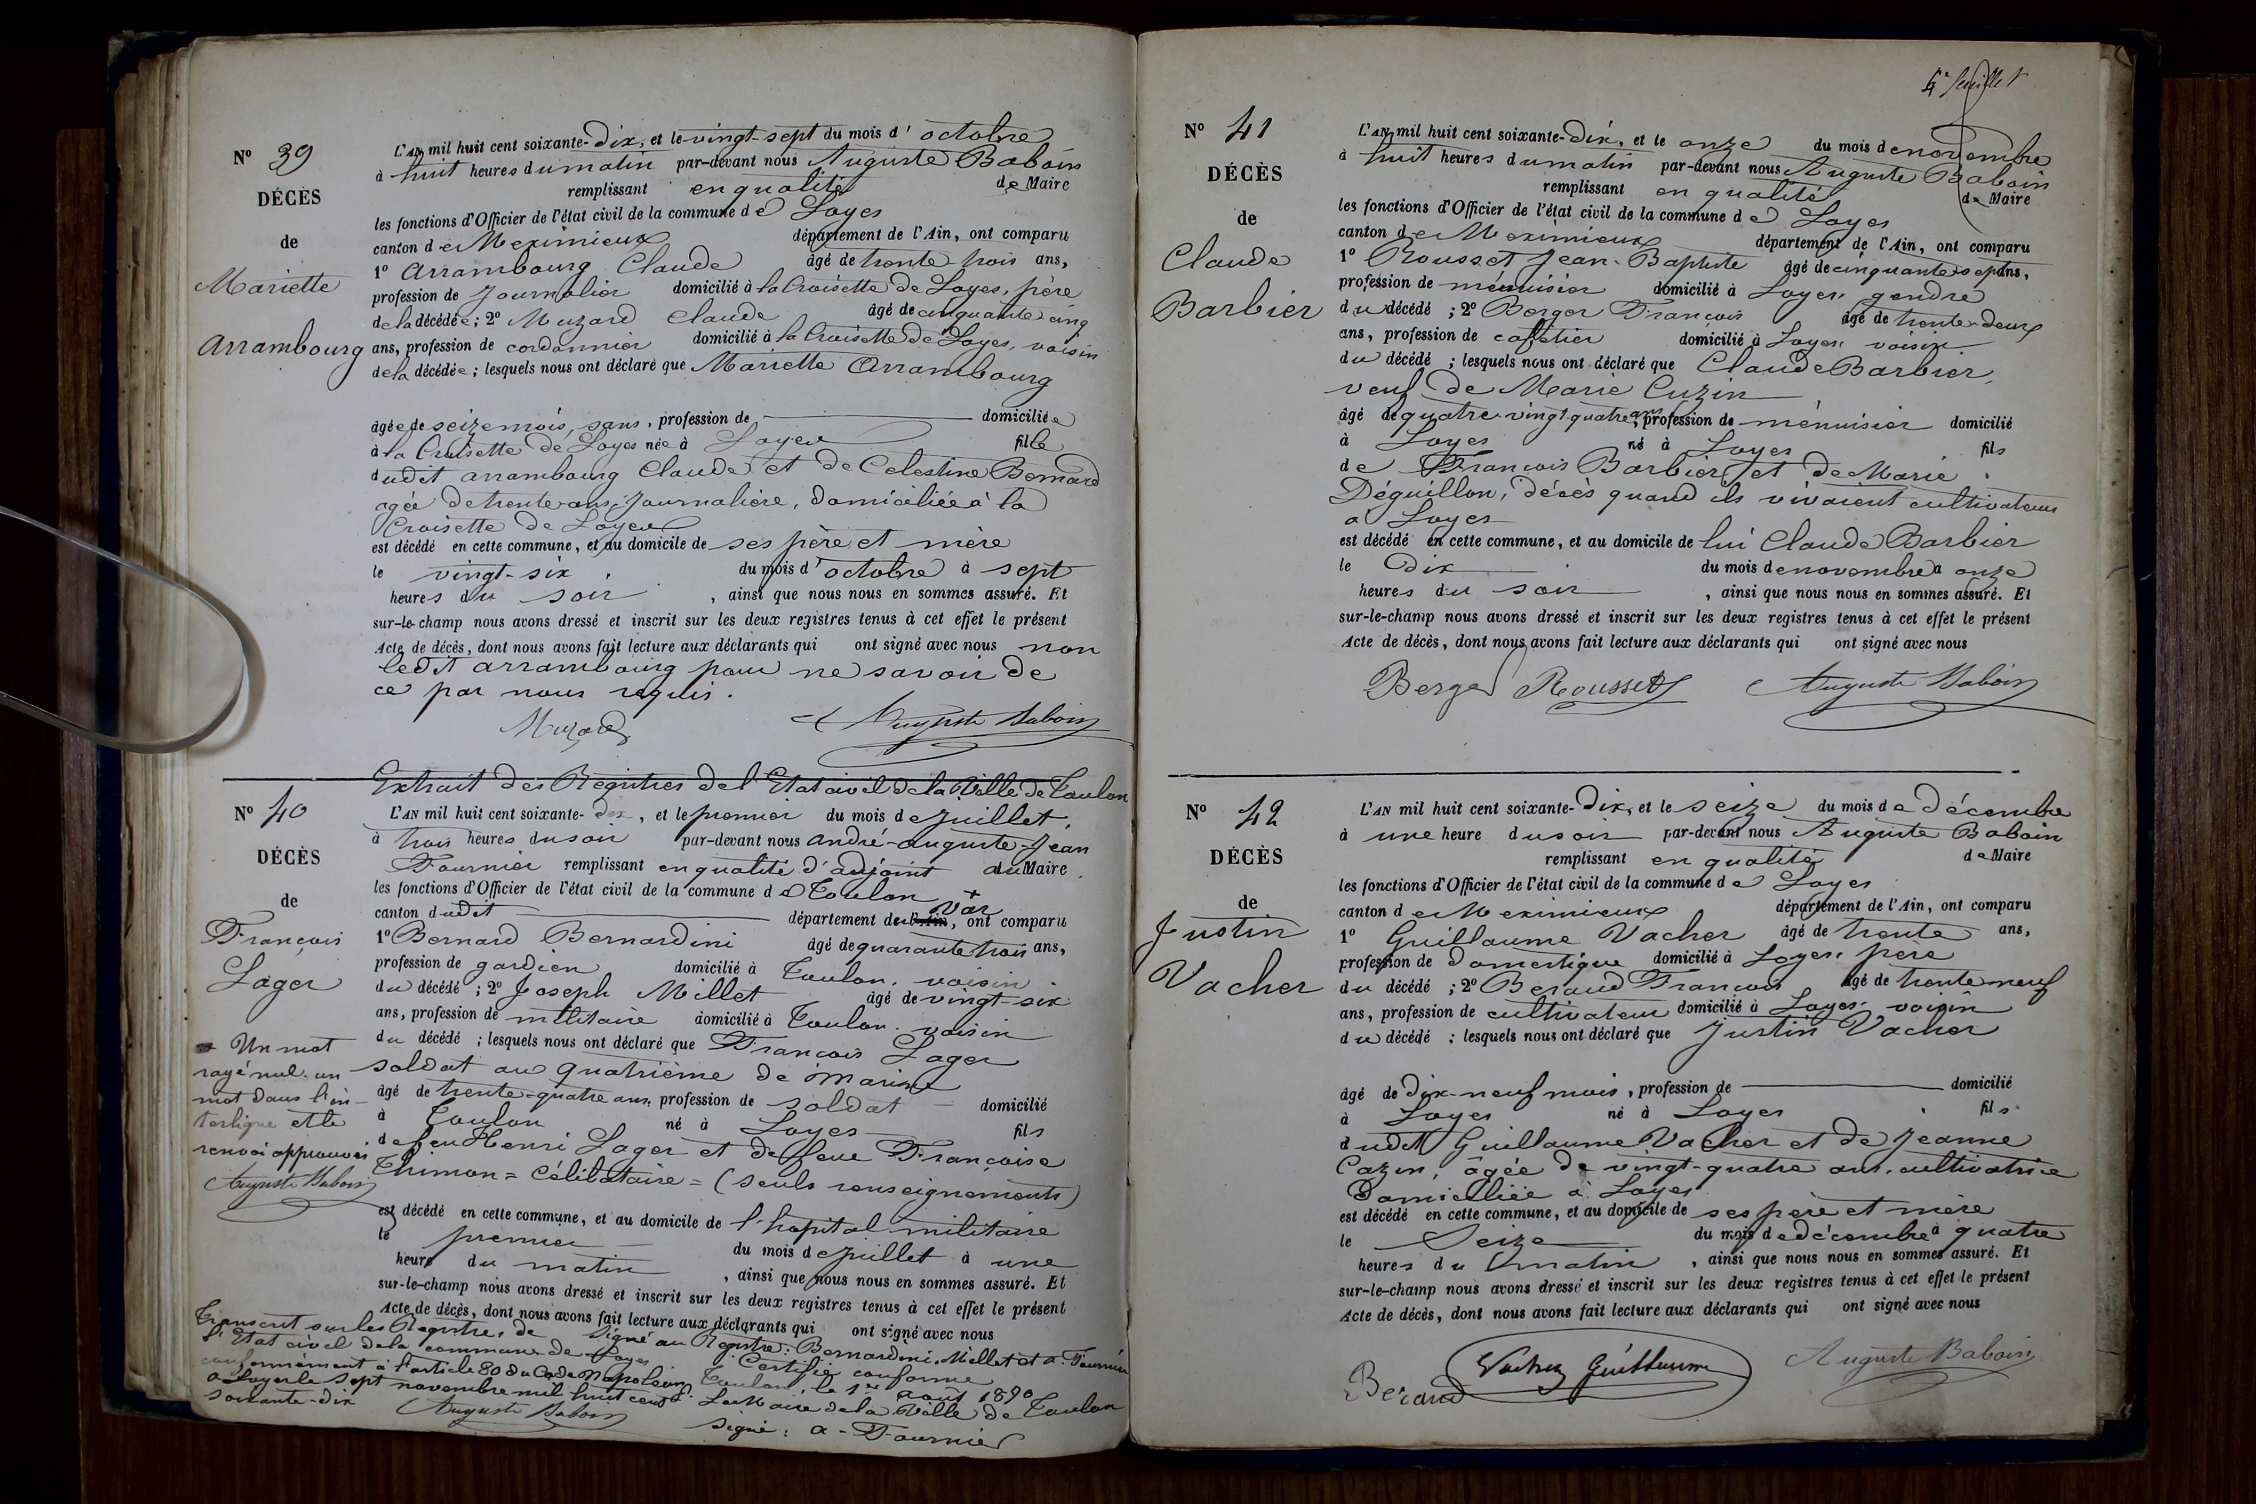 N° 39
DÉCÈS
de
Mariette
Arrambourg
L'AN mil huit cent soixante-dix, et le vingt-sept du mois d'octobre
à huit heures du matin par-devant nous Auguste Baboin
remplissant en qualité de Maire
les fonctions d'Officier de l'état civil de la commune de Loyes
canton de Meximieux département de l'Ain, ont comparu
1° Arrambourg Claude âgé de trente trois ans,
profession de Journalier domicilié à la Croisette de Loyes, père
de la décédée ; 2° Muzard Claude âgé de cinquante cinq
ans, profession de cordonnier domicilié à la Croisette de Loyes, voisin
de la décédée ; lesquels nous ont déclaré que Mariette Arrambourg
âgée de seize mois, sans, profession de domiciliée
à la Croisette de Loyes née à Loyes fille
dudit arrambourg Claude et de Celestine Bernard
agée de trente ans, Journalière, domiciliée à la
Croisette de Loyes
est décédé en cette commune, et au domicile de ses père et mère
le vingt-six du mois d'octobre à sept
heures du soir, ainsi que nous nous en sommes assuré. Et
sur-le-champ nous avons dressé et inscrit sur les deux registres tenus à cet effet le présent
Acte de décès, dont nous avons fait lecture aux déclarants qui ont signé avec nous non
ledit arrambourg pour ne savoir de
ce par nous requis.
Muzard Auguste Baboin
Extrait des Registres de l'Etat civil de la Ville de Toulon
N° 40
DÉCÈS
de
François
Lager
Un mot
rayé nul. un
mot dans l'in-
terligne et le
renvoi approuvés
Auguste Baboin
L'AN mil huit cent soixante-dix, et le premier du mois de Juillet,
à trois heures du soir par-devant nous andré-auguste-Jean
Fournier remplissant en qualité d'adjoint au Maire
les fonctions d'Officier de l'état civil de la commune de Toulon
Var
canton dudit département de l'Ain, ont comparu
1° Bernard Bernardini âgé de quarante trois ans,
profession de gardien domicilié à Toulon, voisin
du décédé ; 2° Joseph Millet âgé de vingt-six
ans, profession de militaire domicilié à Toulon, voisin
du décédé ; lesquels nous ont déclaré que François Lager
soldat au quatrième de marine
âgé de trente-quatre ans, profession de soldat domicilié
à Toulon né à Loyes fils
de feu Henri Lager et de feue Françoise
Thimon = célibataire = (seuls renseignements)
est décédé en cette commune, et au domicile de l'hopital militaire
le premier du mois de Juillet à une
heure du matin, ainsi que nous nous en sommes assuré. Et
sur-le-champ nous avons dressé et inscrit sur les deux registres tenus à cet effet le présent
Acte de décès, dont nous avons fait lecture aux déclarants qui ont signé avec nous
Signé au Registre: Bernardini, Millet et a. Fournier
Certifié conforme
Toulon, le 1er aout 1870
Le Maire de la Ville de Toulon
Signé: a-Fournier
Transcrit sur les Registres de
l'Etat civil de la commune de Loyes
conformément à l'article 80 du Code Napoléon
à Loyes le sept novembre mil huit cent
soixante-dix
Auguste Baboin
4e feuillet
N° 41
DÉCÈS
de
Claude
Barbier
L'AN mil huit cent soixante-dix, et le onze du mois de novembre
à huit heures du matin par-devant nous Auguste Baboin
remplissant en qualité de Maire
les fonctions d'Officier de l'état civil de la commune de Loyes
canton de Meximieux département de l'Ain, ont comparu
1° Rousset Jean-Baptiste âgé de cinquante-sept ans,
profession de ménuisier domicilié à Loyes, gendre
du décédé ; 2° Berger François âgé de trente-deux
ans, profession de cafetier domicilié à Loyes, voisin
du décédé ; lesquels nous ont déclaré que Claude Barbier,
veuf de Marie Cuzin
âgé de quatre-vingt quatre ans, profession de ménuisier domicilié
à Loyes né à Loyes fils
de François Barbier et de Marie
Déguillon, décès quand ils vivaient cultivateurs
à Loyes
est décédé en cette commune, et au domicile de lui Claude Barbier
le Dix du mois de novembre à onze
heures du soir, ainsi que nous nous en sommes assuré. Et
sur-le-champ nous avons dressé et inscrit sur les deux registres tenus à cet effet le présent
Acte de décès, dont nous avons fait lecture aux déclarants qui ont signé avec nous
Berger Rousset Auguste Baboin
N° 42
DÉCÈS
de
Justin
Vacher
L'AN mil huit cent soixante-dix, et le seize du mois de décembre
à une heure du soir par-devant nous Auguste Baboin
remplissant en qualité de Maire
les fonctions d'Officier de l'état civil de la commune de Loyes
canton de Meximieux département de l'Ain, ont comparu
1° Guillaume Vacher âgé de trente ans,
profession de domestique domicilié à Loyes, père
du décédé ; 2° Beraud François âgé de trente neuf
ans, profession de cultivateur domicilié à Loyes, voisin
du décédé ; lesquels nous ont déclaré que Justin Vacher
âgé de dix-neuf mois, profession de domicilié
à Loyes né à Loyes fils
dudit Guillaume Vacher et de Jeanne
Cazin, âgée de vingt-quatre ans, cultivatrice
Domiciliée à Loyes
est décédé en cette commune, et au domicile de ses père et mère
le Seize du mois de décembre à quatre
heures du matin, ainsi que nous nous en sommes assuré. Et
sur-le-champ nous avons dressé et inscrit sur les deux registres tenus à cet effet le présent
Acte de décès, dont nous avons fait lecture aux déclarants qui ont signé avec nous
Vacher Guillaume Auguste Baboin
Beraud